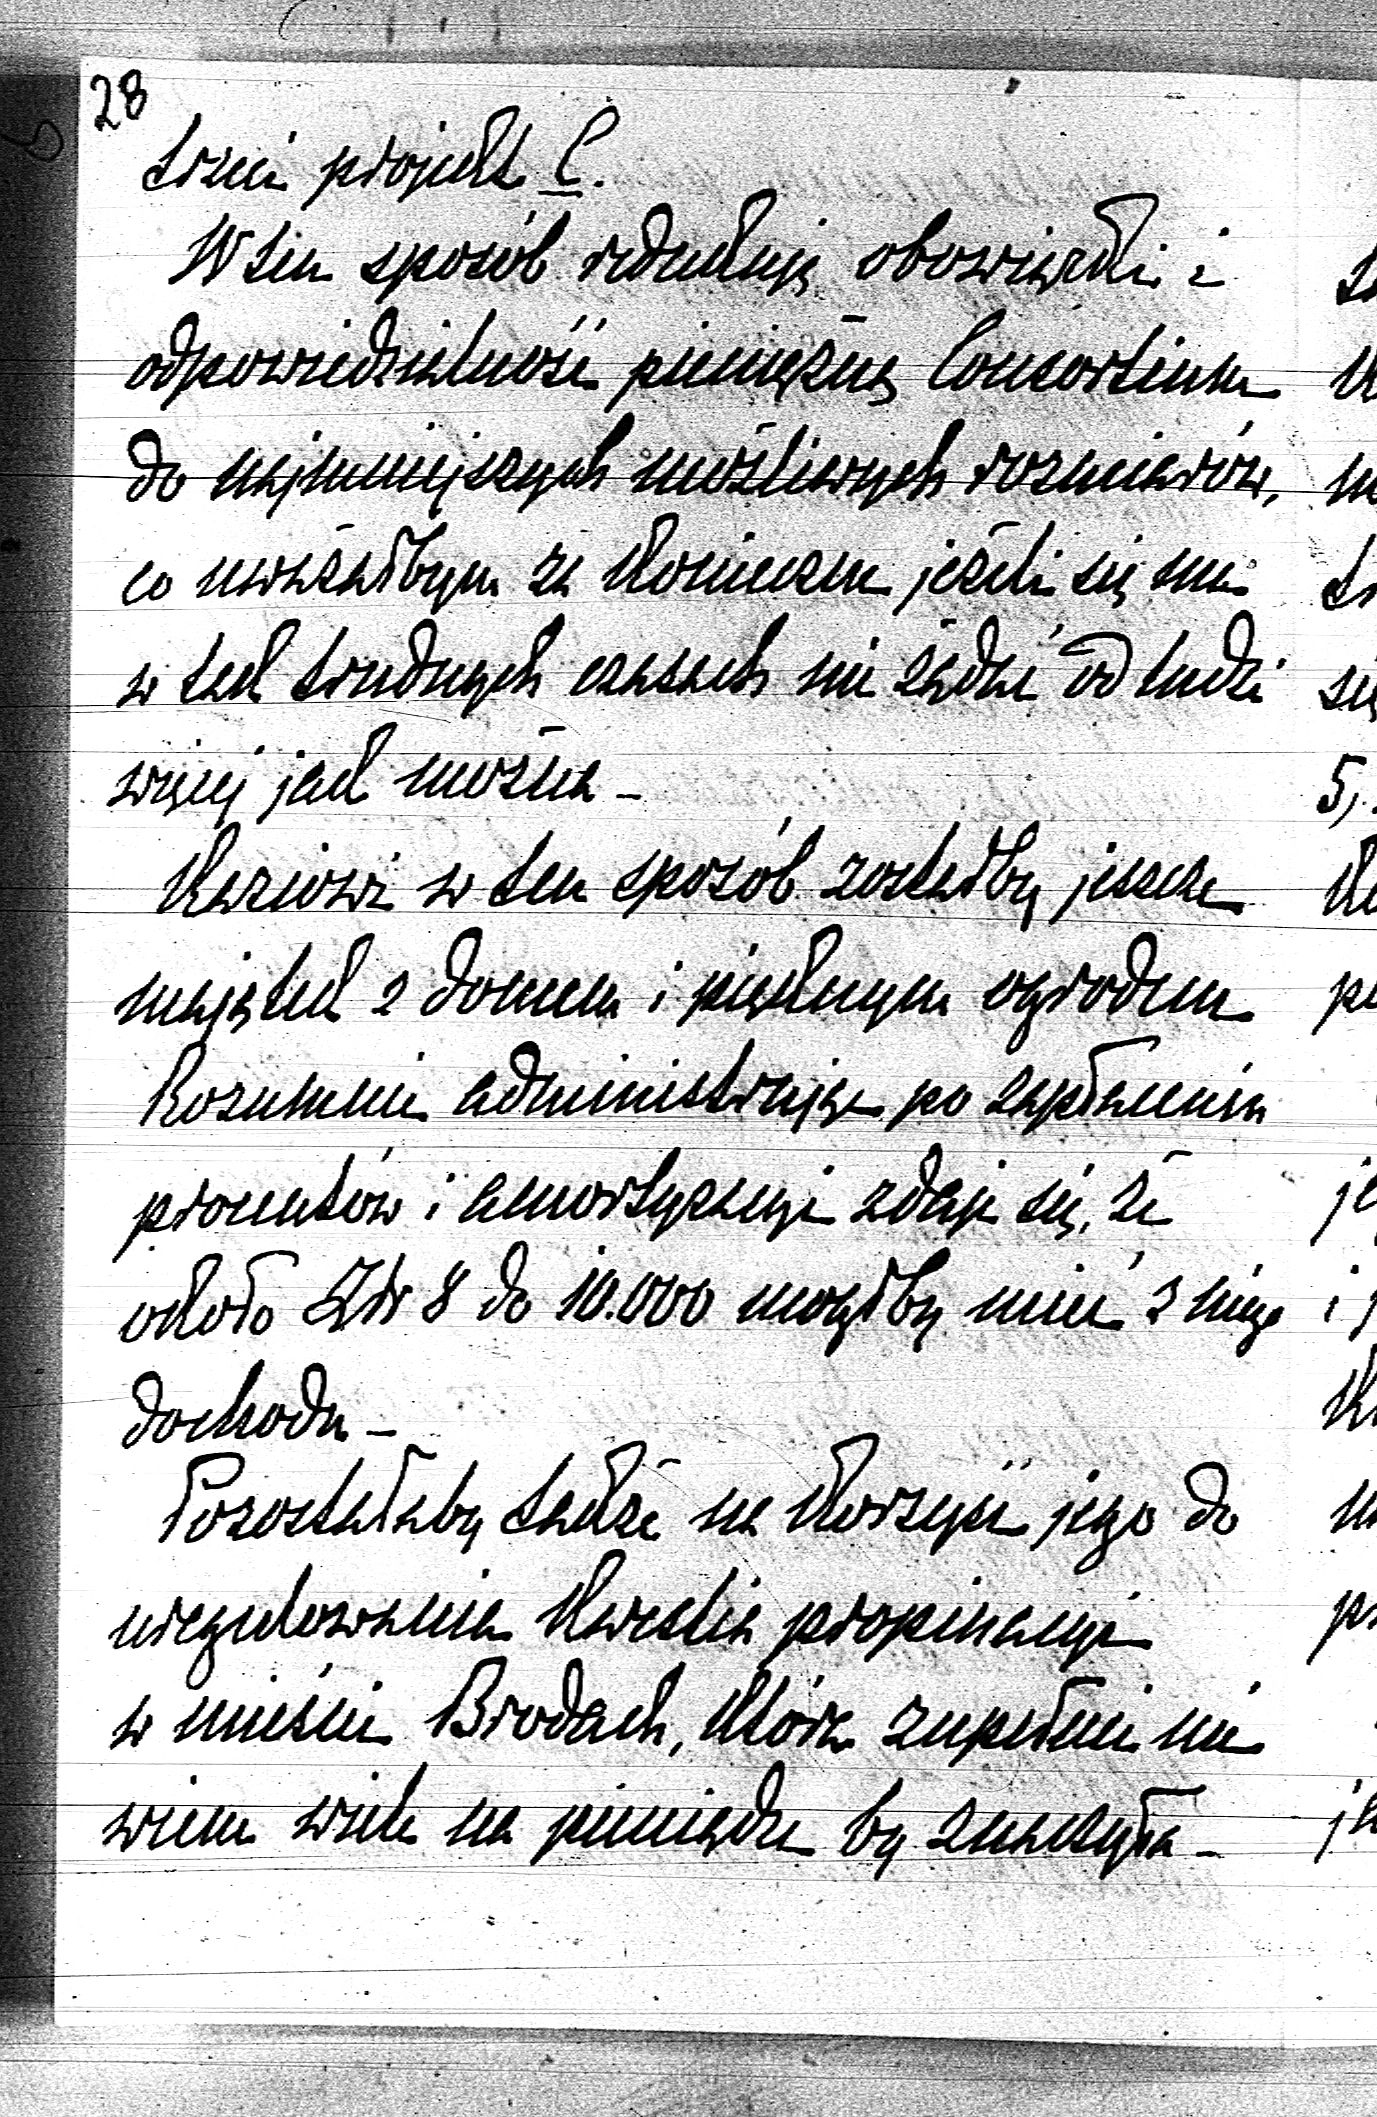 28
trzeci projekt C.
W ten sposób redukuję obowiązki i
odpowiedzialność pieniężną Consortium
do najmniejszych możliwych rozmiarów,
co uważałbym za konieczne jeżeli się ma
w tak trudnych czasach nie żądać od ludzi
więcej jak można –
Kaziowi w ten sposób zostałby jeszcze
majątek z domem i pięknym ogrodem
Rozumnie administrując po zapłaceniu
procentów i amortyzacyi zdaje się, że
około Złr 8 do 10.000 mógłby mieć z niego
dochodu –
Pozostałaby także na korzyść jego do
uregulowania kwestia propinacyi
w mieście Brodach, która zupełnie nie
wiem wiele na pieniądze by znaczyła –